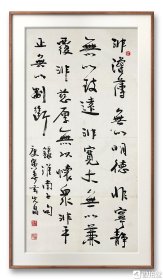 非澹薄無以明德非寧靜
無以致遠非寬大無以兼
覆非慈厚無以懷眾非平
正無以制斷
錄淮南子句